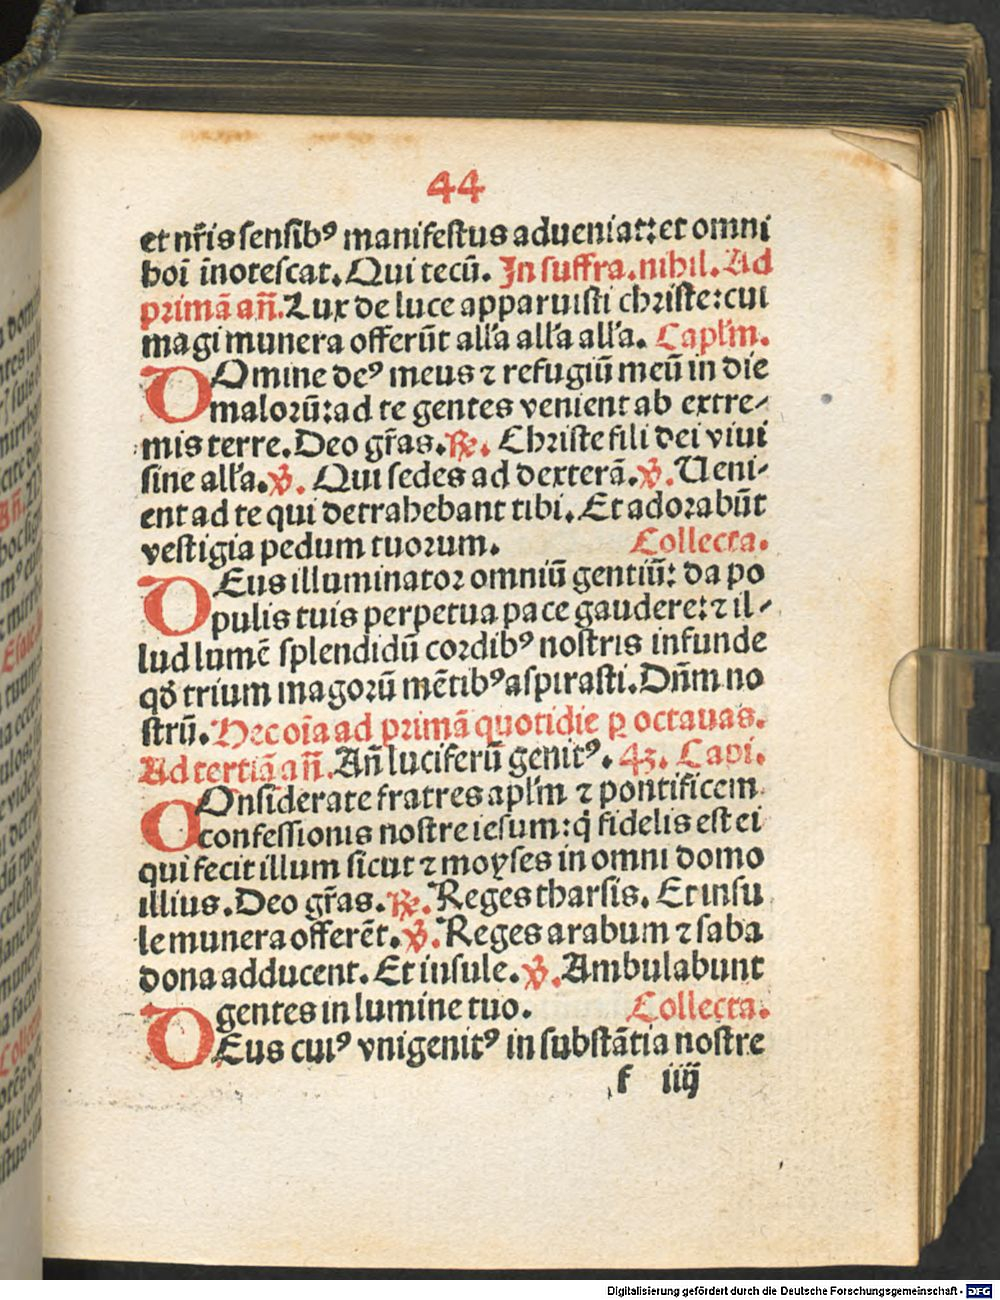 44
et nr̄is sensibꝰ manifestus adueniat: et omni
boi ̄inotescat. Qui tecū. In suffra. nihil. Ad
primā añ. Lux de luce apparuisti christe: cui
magi munera offerūt all'a all'a all'a. Capl'm.
DOmine deꝰ meus ⁊ refugiū meū in die
malorū: ad te gentes venient ab extre-
mis terre. Deo gr̄as. ℟. Christe fili dei viui
sine all'a. ℣. Qui sedes ad dexterā. ℣. Ueni-
ent ad te qui detrahebant tibi. Et adorabūt
vestigia pedum tuorum. Collecta.
DEus illuminator omniū gentiū: da po
pulis tuis perpetua pace gaudere: ⁊ il-
lud lumē splendidū cordibꝰ nostris infunde
qd̄ trium magorū mētibꝰ aspirasti. Dn̄m no
strū. Hec oīa ad primā quotidie ꝑ octauas.
Ad tertiā añ. Añ luciferū genitꝰ. 43. Capi.
COnsiderate fratres apl'm ⁊ pontificem
confessionis nostre iesum: q̄ fidelis est ei
qui fecit illum sicut ⁊ moyses in omni domo
illius. Deo gr̄as. ℟. Reges tharsis. Et insu
le munera offerēt. ℣. Reges arabum ⁊ saba
dona adducent. Et insule. ℣. Ambulabunt
gentes in lumine tuo. Collecta.
DEus cuiꝰ vnigenitꝰ in substātia nostre
f iiij
Digitalisierung gefördert durch die Deutsche Forschungsgemeinschaft - DFG